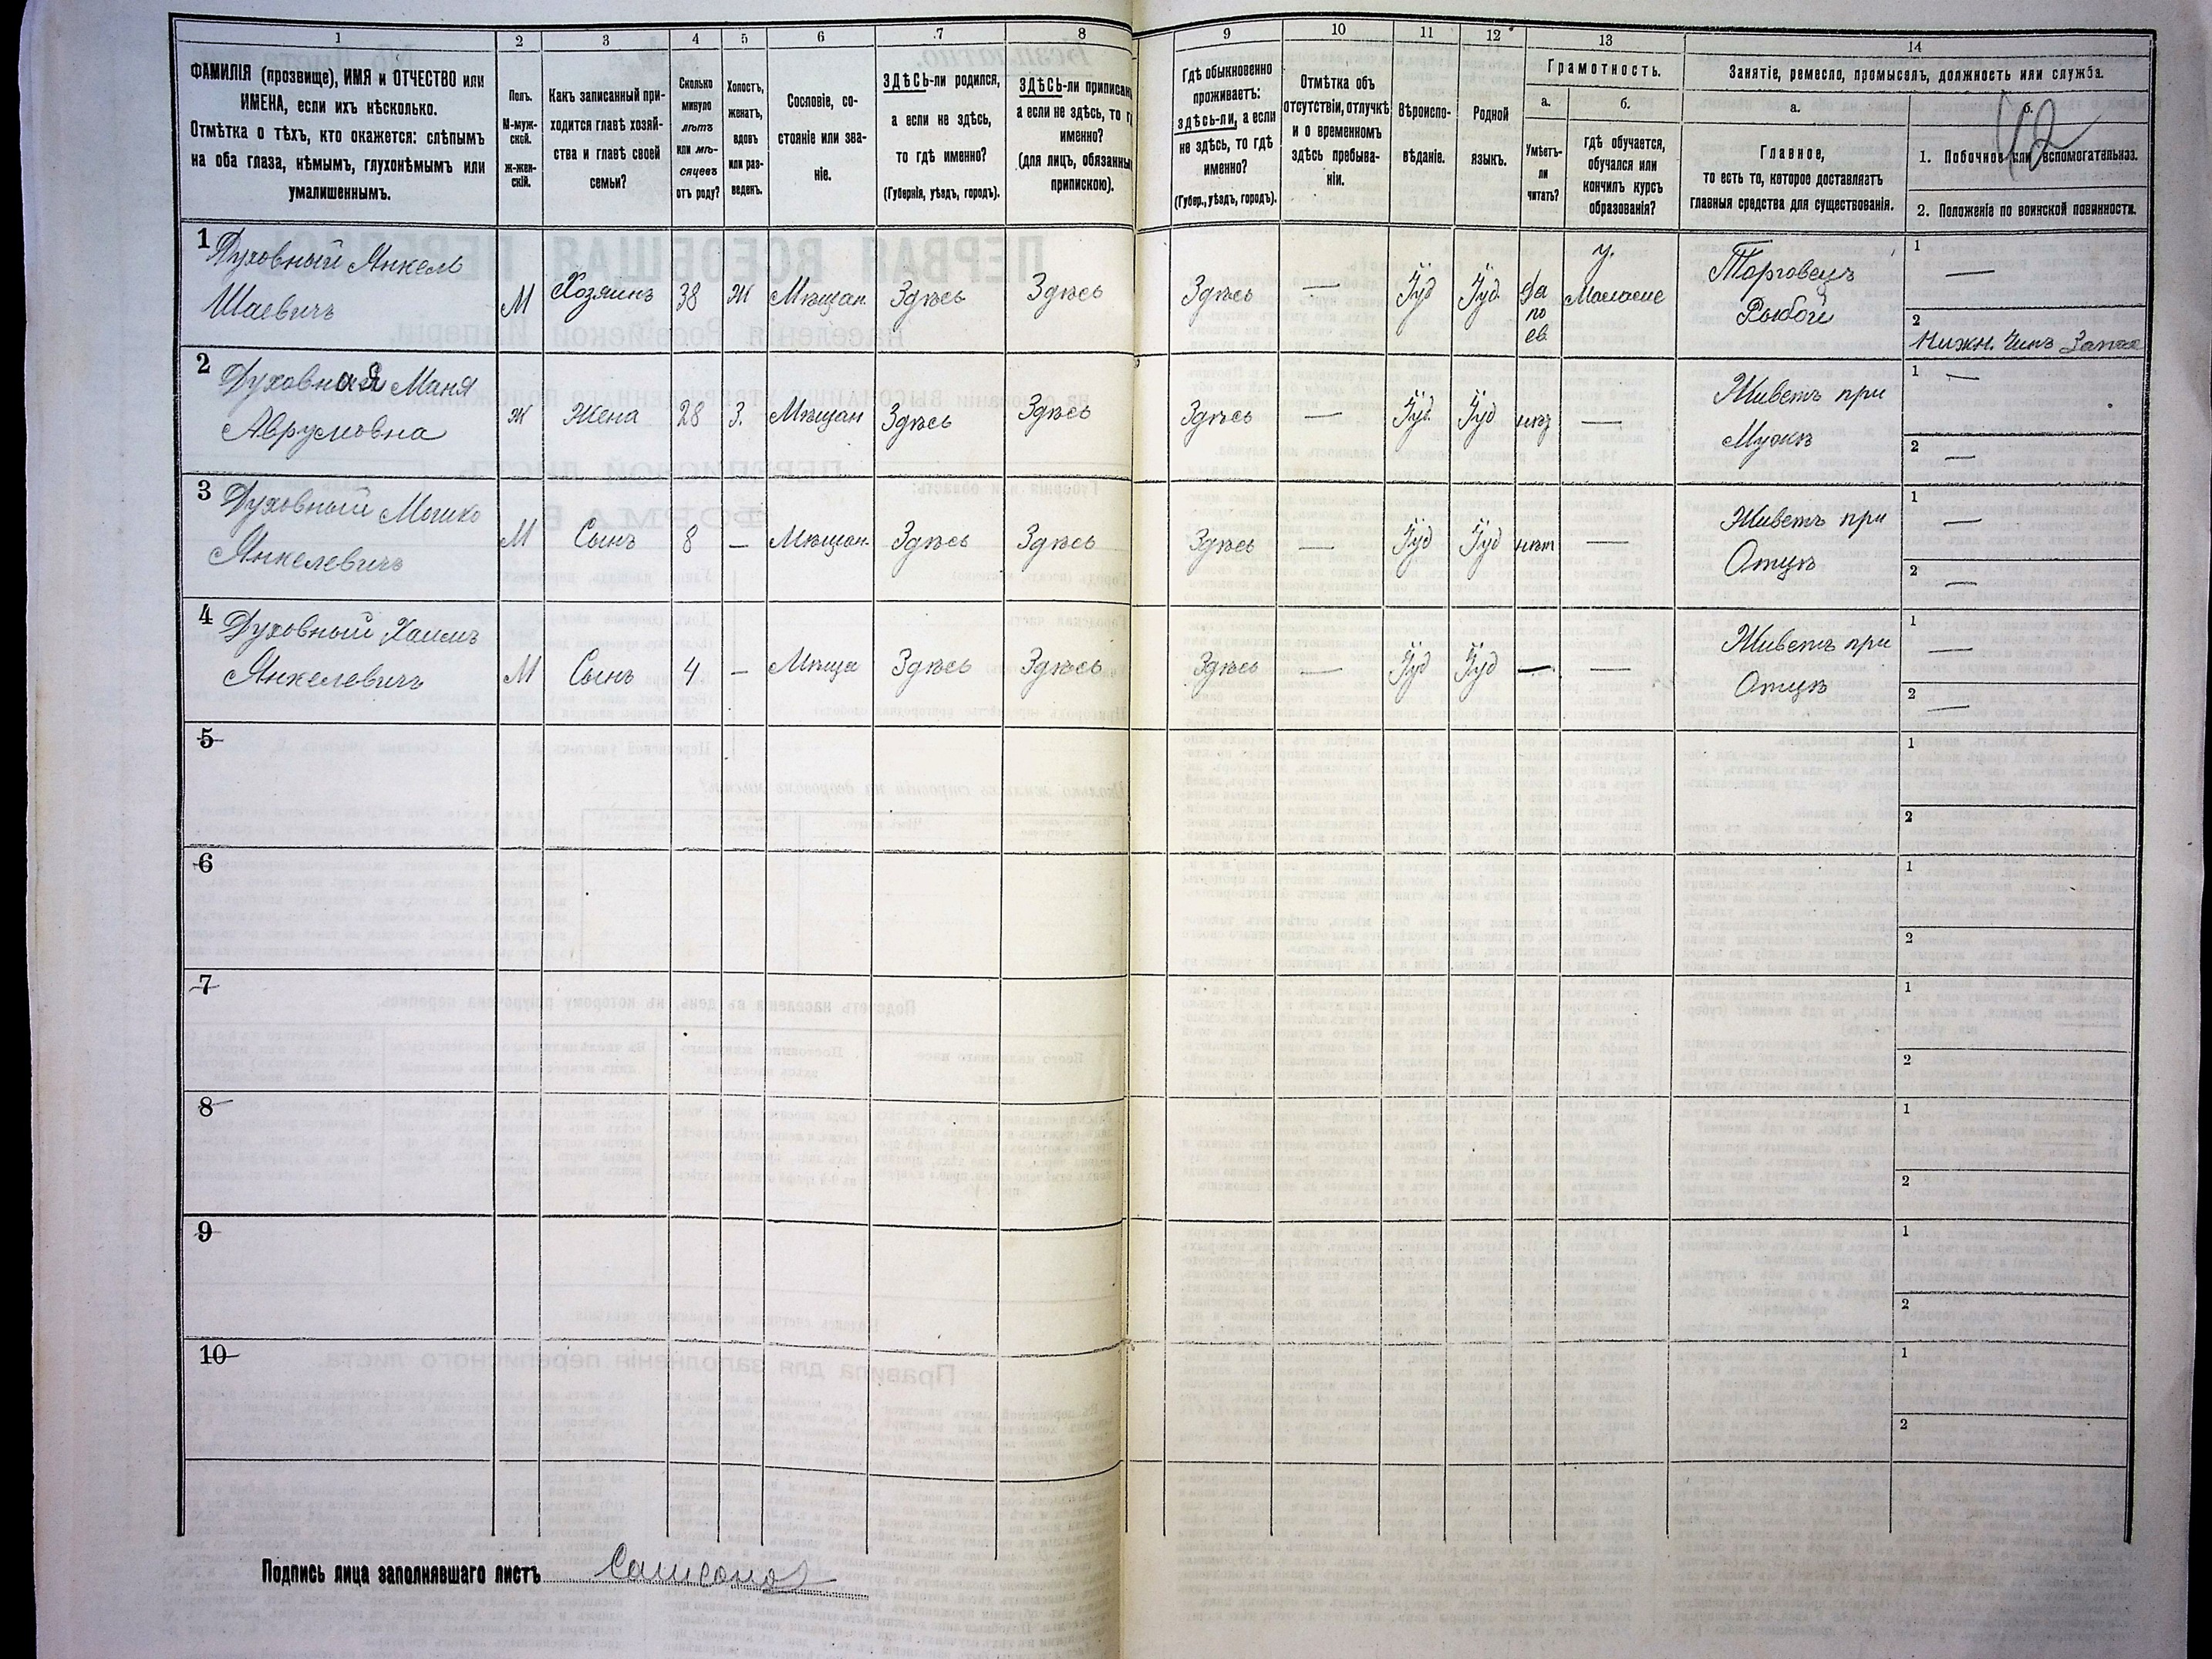 1 2 3 4 5 6 7 8 9 10 11 12 13 14
ФАМИЛІЯ (прозвище), ИМЯ и ОТЧЕСТВО или
ИМЕНА, если ихъ нѣсколько.
Отмѣтка о тѣхъ, кто окажется: слѣпымъ
на оба глаза, нѣмымъ, глухонѣмымъ или
умалишеннымъ.
Полъ.
М-муж-
ской.
ж-жен-
скій.
Какъ записанный при-
ходится главѣ хозяй-
ства и главѣ своей
семьи?
Сколько
минуло
лѣтъ
или мѣ-
сяцевъ
отъ роду?
Холостъ,
женатъ,
вдовъ
или раз-
веденъ.
Сословіе, со-
стояніе или зва-
ніе.
ЗДѢСЬ-ли родился,
а если не здѣсь,
то гдѣ именно?
(Губернія, уѣздъ, городъ).
ЗДѢСЬ-ли приписанъ
а если не здѣсь, то г
именно?
(для лицъ, обязанны
припискою).
Гдѣ обыкновенно
проживаетъ:
здѣсь-ли, а если
не здѣсь, то гдѣ
именно?
(Губер., уѣздъ, городъ).
Отмѣтка объ
отсутствіи, отлучкѣ
и о временномъ
здѣсь пребыва-
ніи.
Вѣроиспо-
вѣданіе.
Родной
языкъ.
Грамотность.
а. б.
Умѣетъ-
ли
читать?
гдѣ обучается,
обучался или
кончилъ курсъ
образованія?
Занятіе, ремесло, промыселъ, должность или служба.
а. б.
Главное,
то есть то, которое доставляетъ
главныя средства для существованія.
12
1. Побочное или вспомогательное.
2. Положеніе по воинской повинности.
1 Духовный Янкель
Шаевичъ М Хозяинъ 38 Ж Мѣщан. Здѣсь Здѣсь Здѣсь — Іуд Іуд. да
по
ев. у.
Маласие Торговецъ
Рыбой 1 —
2 Нижн. Чинъ Запаса
2 Духовная Маня
Аврумовна ж Жена 28 З. Мѣщан Здѣсь Здѣсь Здѣсь — Іуд. Іуд нѣт — Живетъ при
Мужѣ 1 —
2 —
3 Духовный Мошко
Янкелевичъ М Сынъ 8 — Мѣщан. Здѣсь Здѣсь Здѣсь — Іуд Іуд нѣт — Живетъ при
Отцѣ 1 —
2 —
4 Духовный Хаимъ
Янкелевичъ М Сынъ 4 — Мѣща Здѣсь Здѣсь Здѣсь — Іуд Іуд — — Живетъ при
Отцѣ 1 —
2 —
5 1
2
6 1
2
7 1
2
8 1
2
9 1
2
10 1
2
Подпись лица заполнявшаго листъ